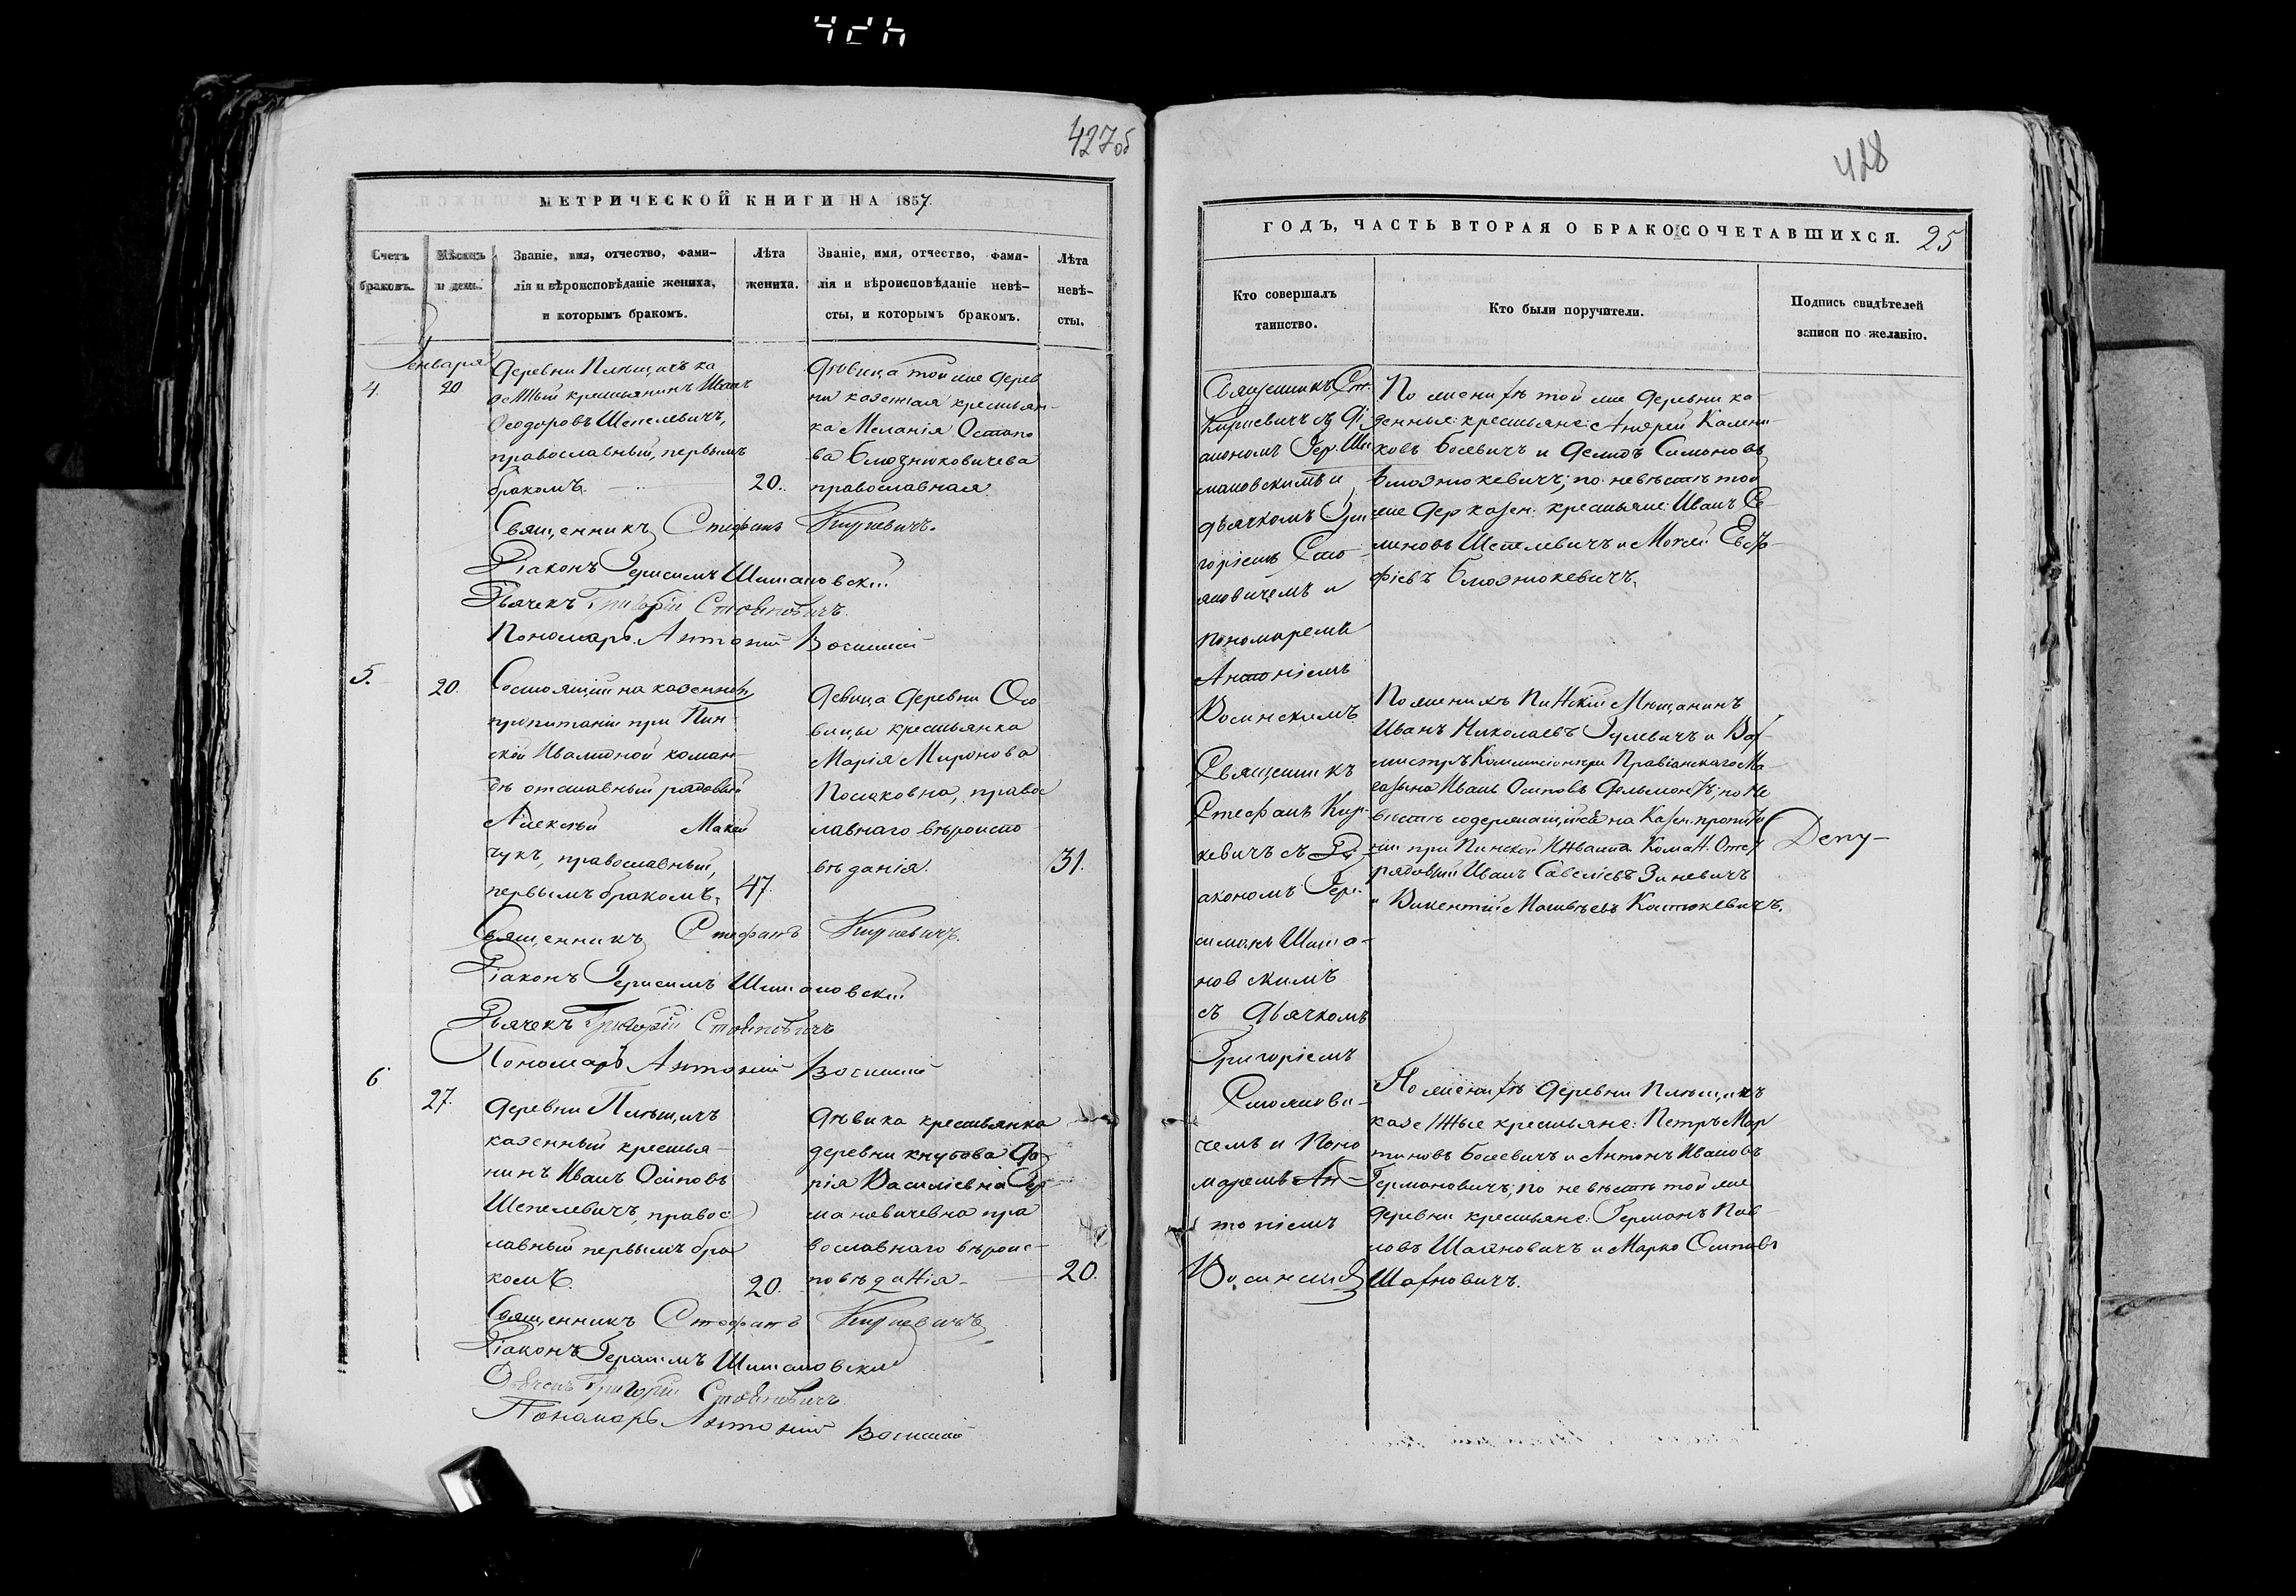 427об
МЕТРИЧЕСКОЙ КНИГИ НА 1857.
Счетъ браковъ.
Мѣсяцъ и день.
Званіе, имя, отчество, фами-
лія и вѣроисповѣданіе жениха,
и которымъ бракомъ.
Лѣта
жениха.
Званіе, имя, отчество, фами-
лія и вѣроисповѣданіе невѣ-
сты, и которымъ бракомъ.
Лѣта
невѣ-
сты.
Января
4. 20
Деревни Плещичъ ка
зенный крестьянинъ Иванъ
Ѳеодоровъ Шепелевичъ,
православный, первымъ
бракомъ.
20.
Дѣвица той же дерев
ни казенная крестьян-
ка Меланія Остапо
ва
православная.
Священникъ Стефанъ Киркевичъ.
Діаконъ Герасимъ Шимановскій
Дьячекъ Григорій Стояновичъ.
Пономарь Антоній Восинскій
5. 20.
Состоящій на казенномъ
пропитаніи при Пин-
ской Инвалидной коман-
дѣ отставный рядовый
Алексѣй Макей
чукъ, православный,
первымъ бракомъ.
47.
Девица деревни Осо
вицы крестьянка
Марія Миронова
православ
лавнаго вѣроиспо-
вѣданія.
31.
Священникъ Стефанъ Киркевичъ.
Діаконъ Герасимъ Шимановскій
Дьячекъ Григорій Стояновичъ
Пономарь Антоній Восинскій
6 27.
Деревни Плещичъ
казенный крестья-
нинъ Иванъ Осиповъ
Шепелевичъ, правос
лавный первымъ бра
комъ.
20.
Дѣвика крестьянка
деревни Кнубова Да
рія Василіевна Гер
мановичевна пра
вославнаго вѣроис-
повѣданія.
20.
Священникъ Стефанъ Киркевичъ
Діаконъ Герасимъ Шимановскій
Дьячекъ Григорій Стояновичъ.
Пономарь Антоній Восинскій
428
ГОДЪ, ЧАСТЬ ВТОРАЯ О БРАКОСОЧЕТАВШИХСЯ. 25
Кто совершалъ
таинство.
Кто были поручители.
Подпись свидѣтелей
записи по желанію.
Священникъ Ст.
Киркевичъ съ Ді
акономъ Гер. Ши
мановскимъ и
дьячкомъ Гри
горіемъ Сто
яновичемъ и
пономаремъ
Антоніемъ
Восинскимъ
По женихѣ той же деревни ка
зенные крестьяне: Андрей Калени-
ковъ Боевичъ и Демидъ Симоновъ
по невѣстѣ той
же дер казен. крестьяне: Иванъ Се-
меновъ Шепелевичъ и Мокей Евсѣ-
фіевъ
Священникъ
Стефанъ Кир-
кевичъ съ Ді-
акономъ Гер.
симомъ Шима-
новскимъ
съ дьячкомъ
Григоріемъ
Стоянови-
чемъ и Поно
маремъ Ан-
тоніемъ
Восинскимъ
По женихѣ Пинскій Мѣщанинъ
Иванъ Николаевъ Гулевичъ и Вах
мистръ Коммисіонери Провіанскаго Ма-
газына Иванъ Осиповъ по не
вѣстѣ содержащійся на Казен. пропита
ніи при Пинской Инвалид. Коман. Отст
рядовый Иванъ Савеліевъ Зиневичъ
и Викентій Матвѣевъ Костюкевичъ.
Депу-
По женихѣ деревни Плещичъ
казенные крестьяне: Петръ Мар
тиновъ Боевичъ и Антонъ Ивановъ
Германовичъ; по невѣстѣ той же
деревни крестьяне: Германъ Пав-
ловъ Шахновичъ и Марко Осиповъ
Шахновичъ.